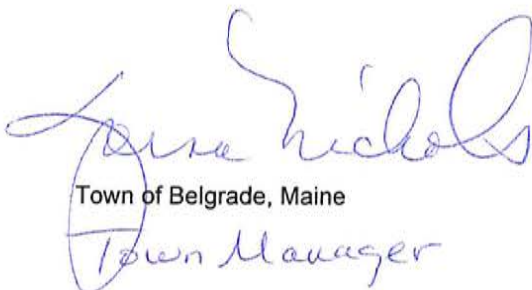 Lorna Nichols
Town of Belgrade, Maine
Town Manager